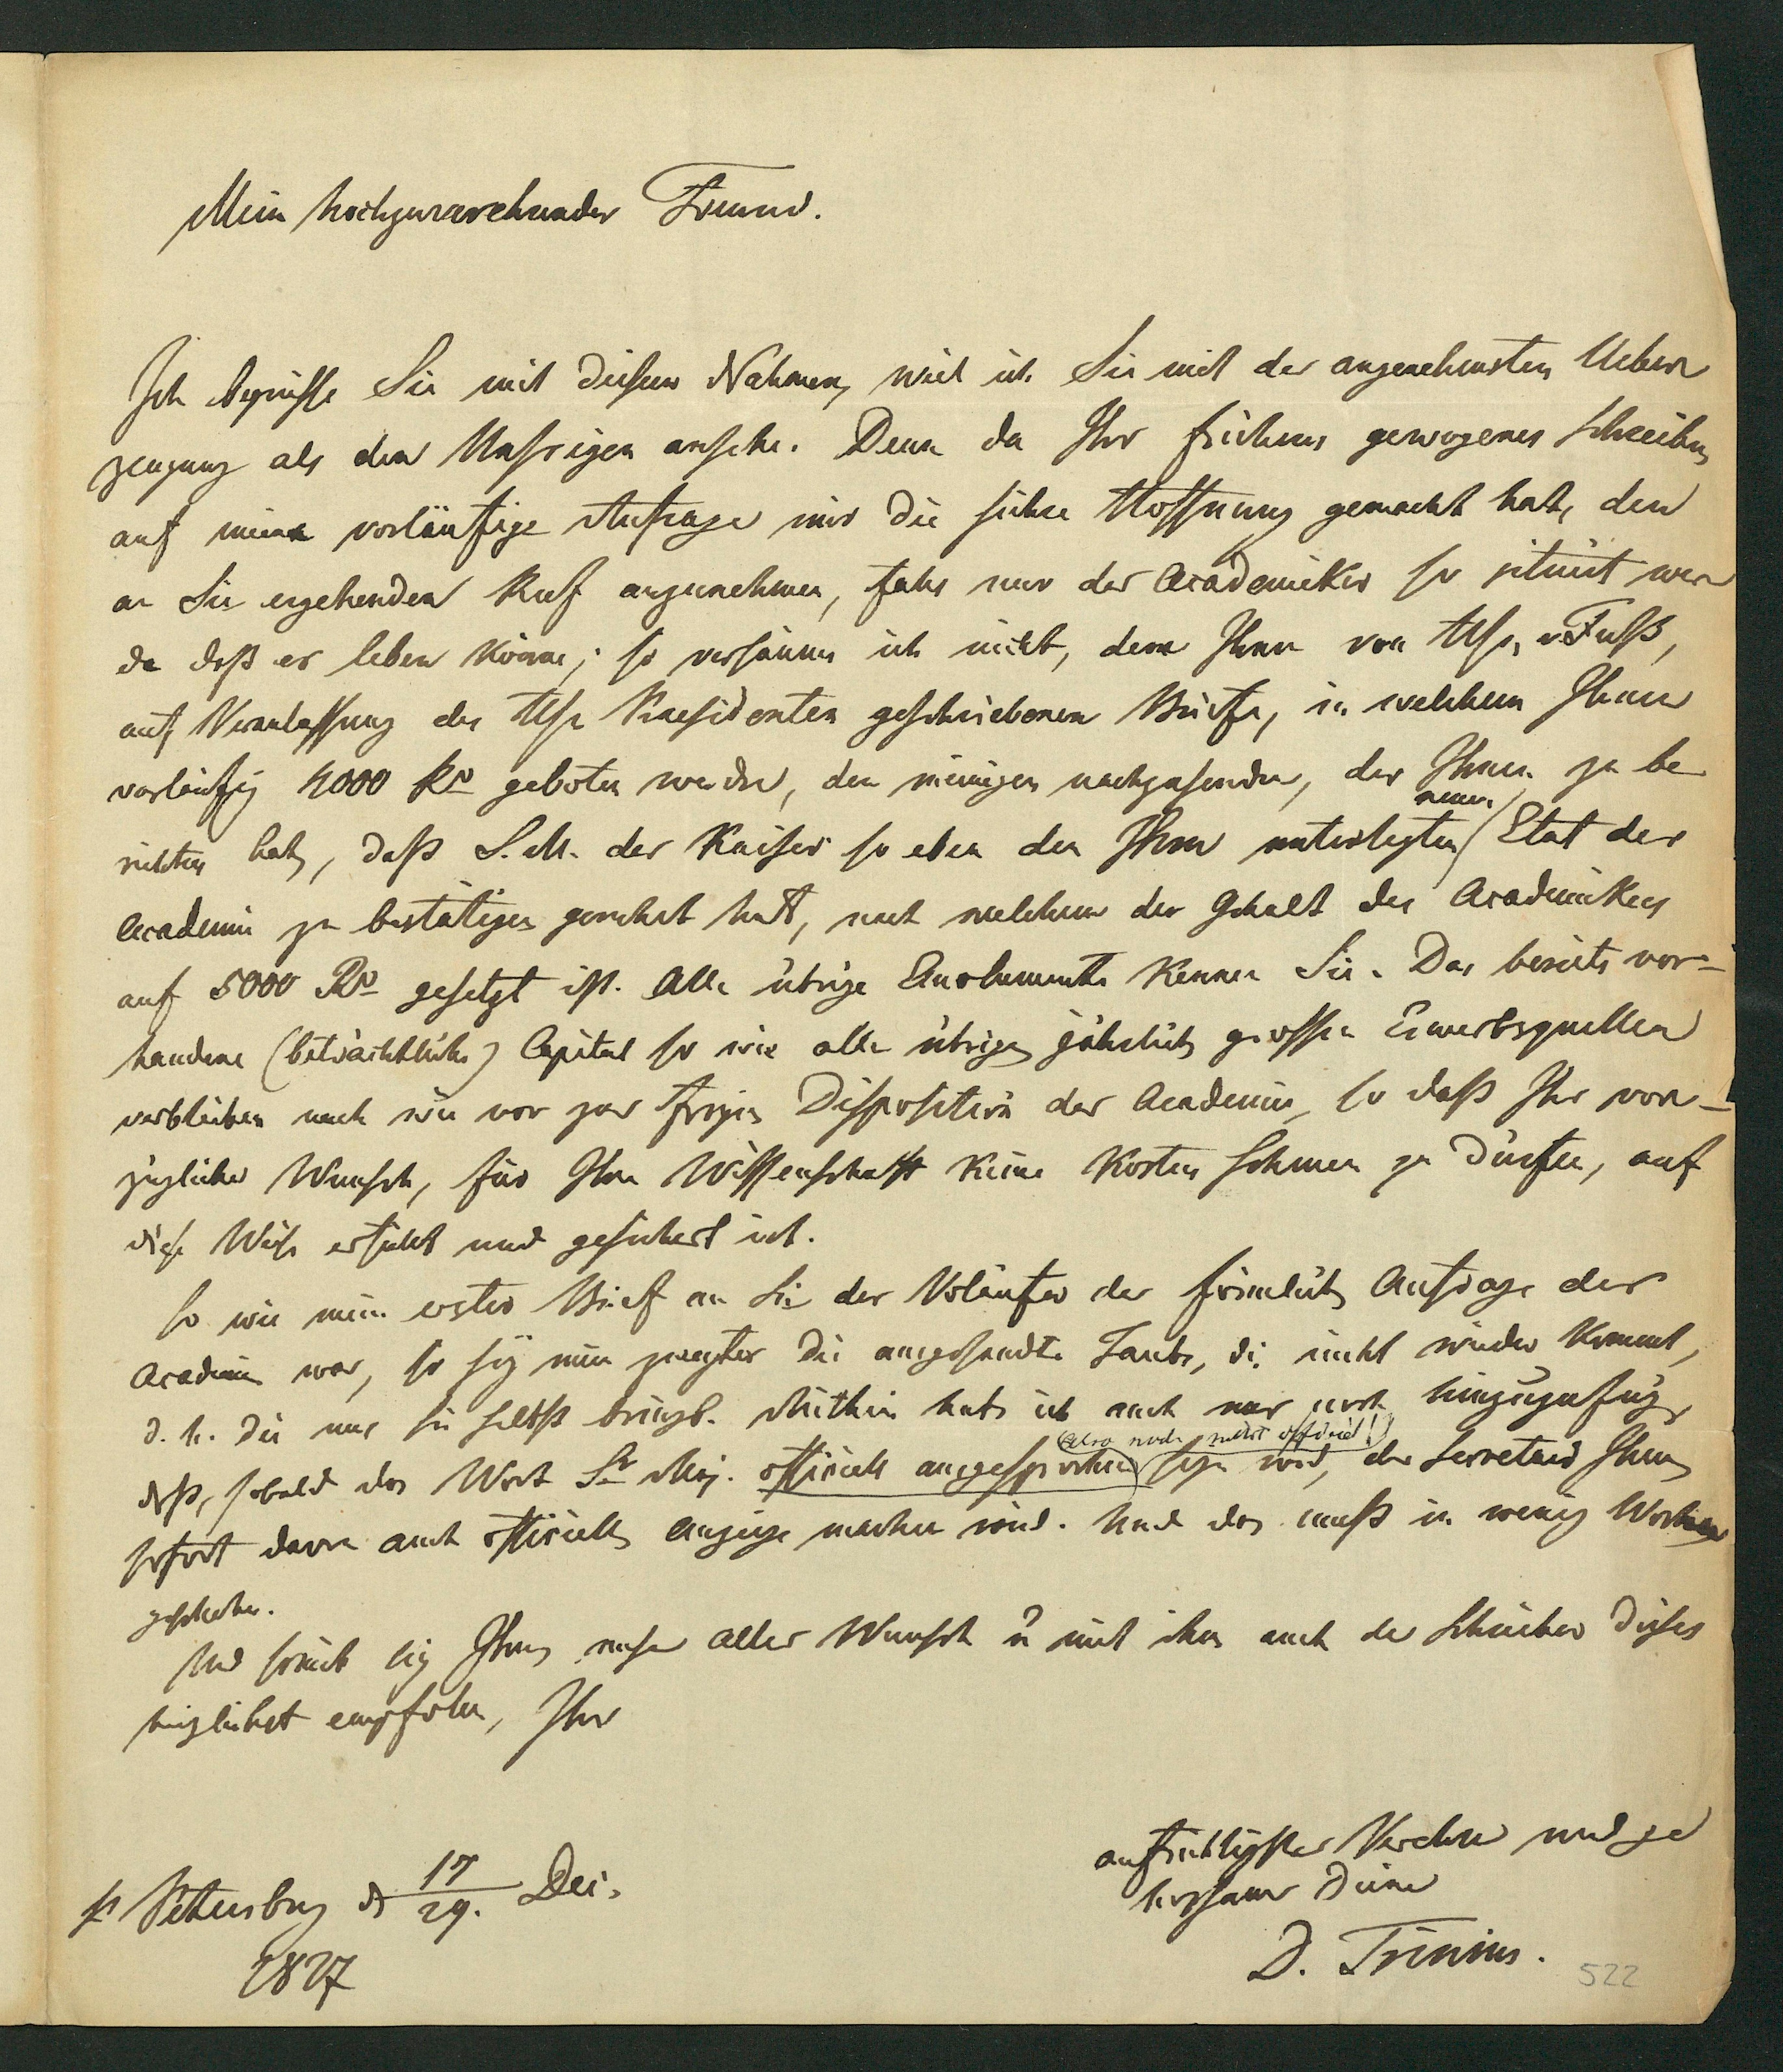 Mein hochzuverehrender Freund.
Ich begrüsse Sie mit diesem Nahmen, weil ich Sie mit der angenehmsten Ueber
zeugung als den Unsrigen ansehe. Denn da Ihr früheres gewogenes Schreiben
auf meine vorläufige Anfrage mir die sichere Hoffnung gemacht hat, den
an Sie ergehenden Ruf anzunehmen, falls nur der Academiker so situirt wer
de daß er leben könne; so versäume ich nicht, dem Ihnen von Hrn v Fuß,
auf Veranlassung des Hrn Praesidenten geschriebenen Briefe, in welchem Ihnen
vorläufig 4000 Rb geboten werden, den meinigen nachzusenden, der Ihnen zu be
richten hat, daß S. M. der Kaiser so eben den Ihm unterlegten neuen Etat der
Academie zu bestätigen geruhet hat, nach welchem der Gehalt des Academikers
auf 5000 Rb gesetzt ist. Alle übrige Emolumente kennen Sie. Das bereits vor-
handene (beträchtliche) Capital so wie alle übrigen jährlich grossen Erwerbsquellen
verbleiben nach wie vor zur freyen Disposition der Academie, so daß Ihr vor-
züglicher Wunsch, für Ihre Wissenschaft keine Kosten scheuen zu dürfen, auf
diese Weise erfüllt und gesichert ist.
So wie mein erster Brief an Sie der Vorläufer der förmlichen Anfrage der
Academie war, so sey mein zweyter die ausgesandte Taube, die nicht wieder kommt,
d. h. die nur Sie selbst bringt. Mithin habe ich auch nur noch hinzuzufügen,
daß, sobald das Wort Sr Maj. officiell ausgesprochen (also noch nicht officiel!) seyn wird, der Secretair Ihnen
sofort davon auch officielle Anzeige machen wird. Und das muß in wenig Wochen
geschehen.
Und somit sey Ihnen unser aller Wunsch u mit ihm auch der Schreiber dieses
herzlichst empfohlen, Ihr
aufrichtigster Verehrer und ge
horsamer Diener
D. Trinius.
St Petersburg d 17/29. Dec.
1827
522